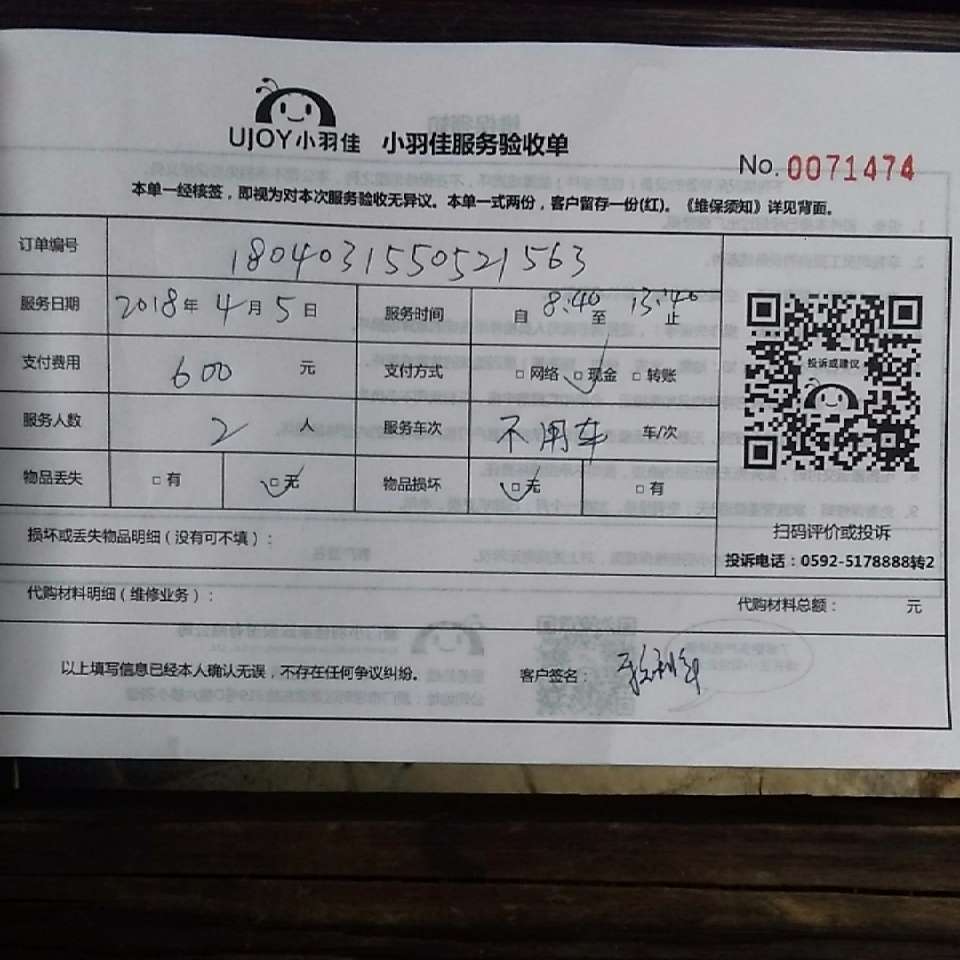 UJOY小羽佳 小羽佳服务验收单
No. 0071474
本单一经核签，即视为对本次服务验收无异议。本单一式两份，客户留存一份(红)。《维保须知》详见背面。
订单编号 1804031550521563
服务日期 2018年4月5日 服务时间 自8:40至13:40止
支付费用 600 元 支付方式 □网络 □现金 □转账
服务人数 2 人 服务车次 不用车 车/次
物品丢失 □有 □无 物品损坏 □无 □有
投诉或建议
扫码评价或投诉
投诉电话：0592-5178888转2
损坏或丢失物品明细（没有可不填）：
代购材料明细（维修业务）： 代购材料总额： 元
以上填写信息已经本人确认无误，不存在任何争议纠纷。 客户签名：